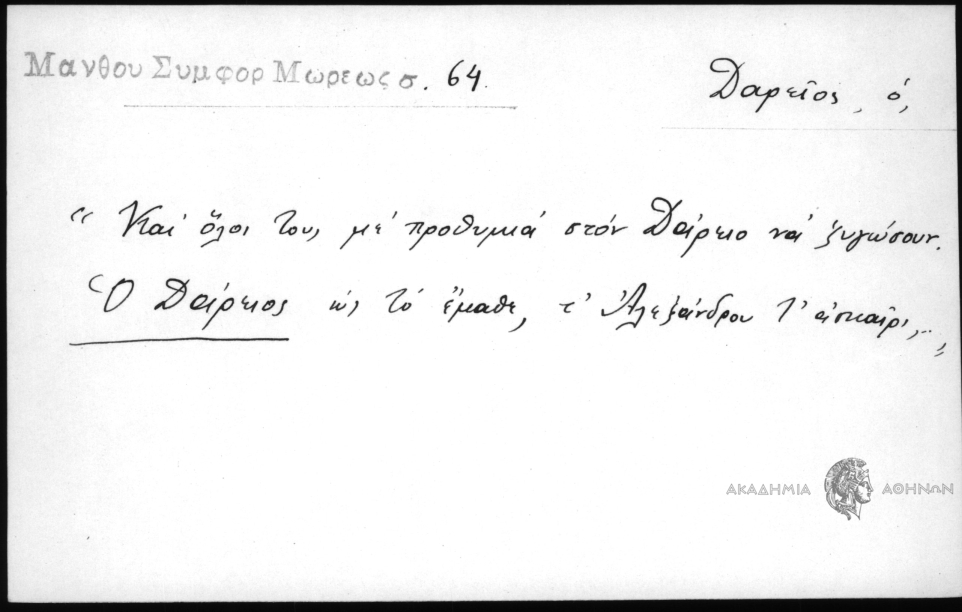 Μανθου Συμφορ Μωρεως σ. 64.
Δαρεῖος, ὁ,
“ Καί ὅλοι τους μέ προθυμιά στόν Δάρειο νά ξυγώσουν.
Ὁ Δάρειος ὡς τό ἔμαθε, τ' Ἀλεξάνδρου τ' ἀσκαῖρι,...„
ΑΚΑΔΗΜΙΑ ΑΘΗΝΩΝ